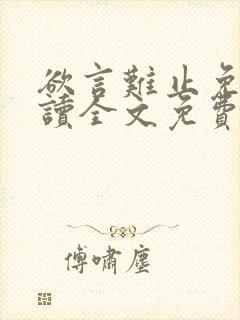 欲言難止免
讀全文免費
傅嘯塵